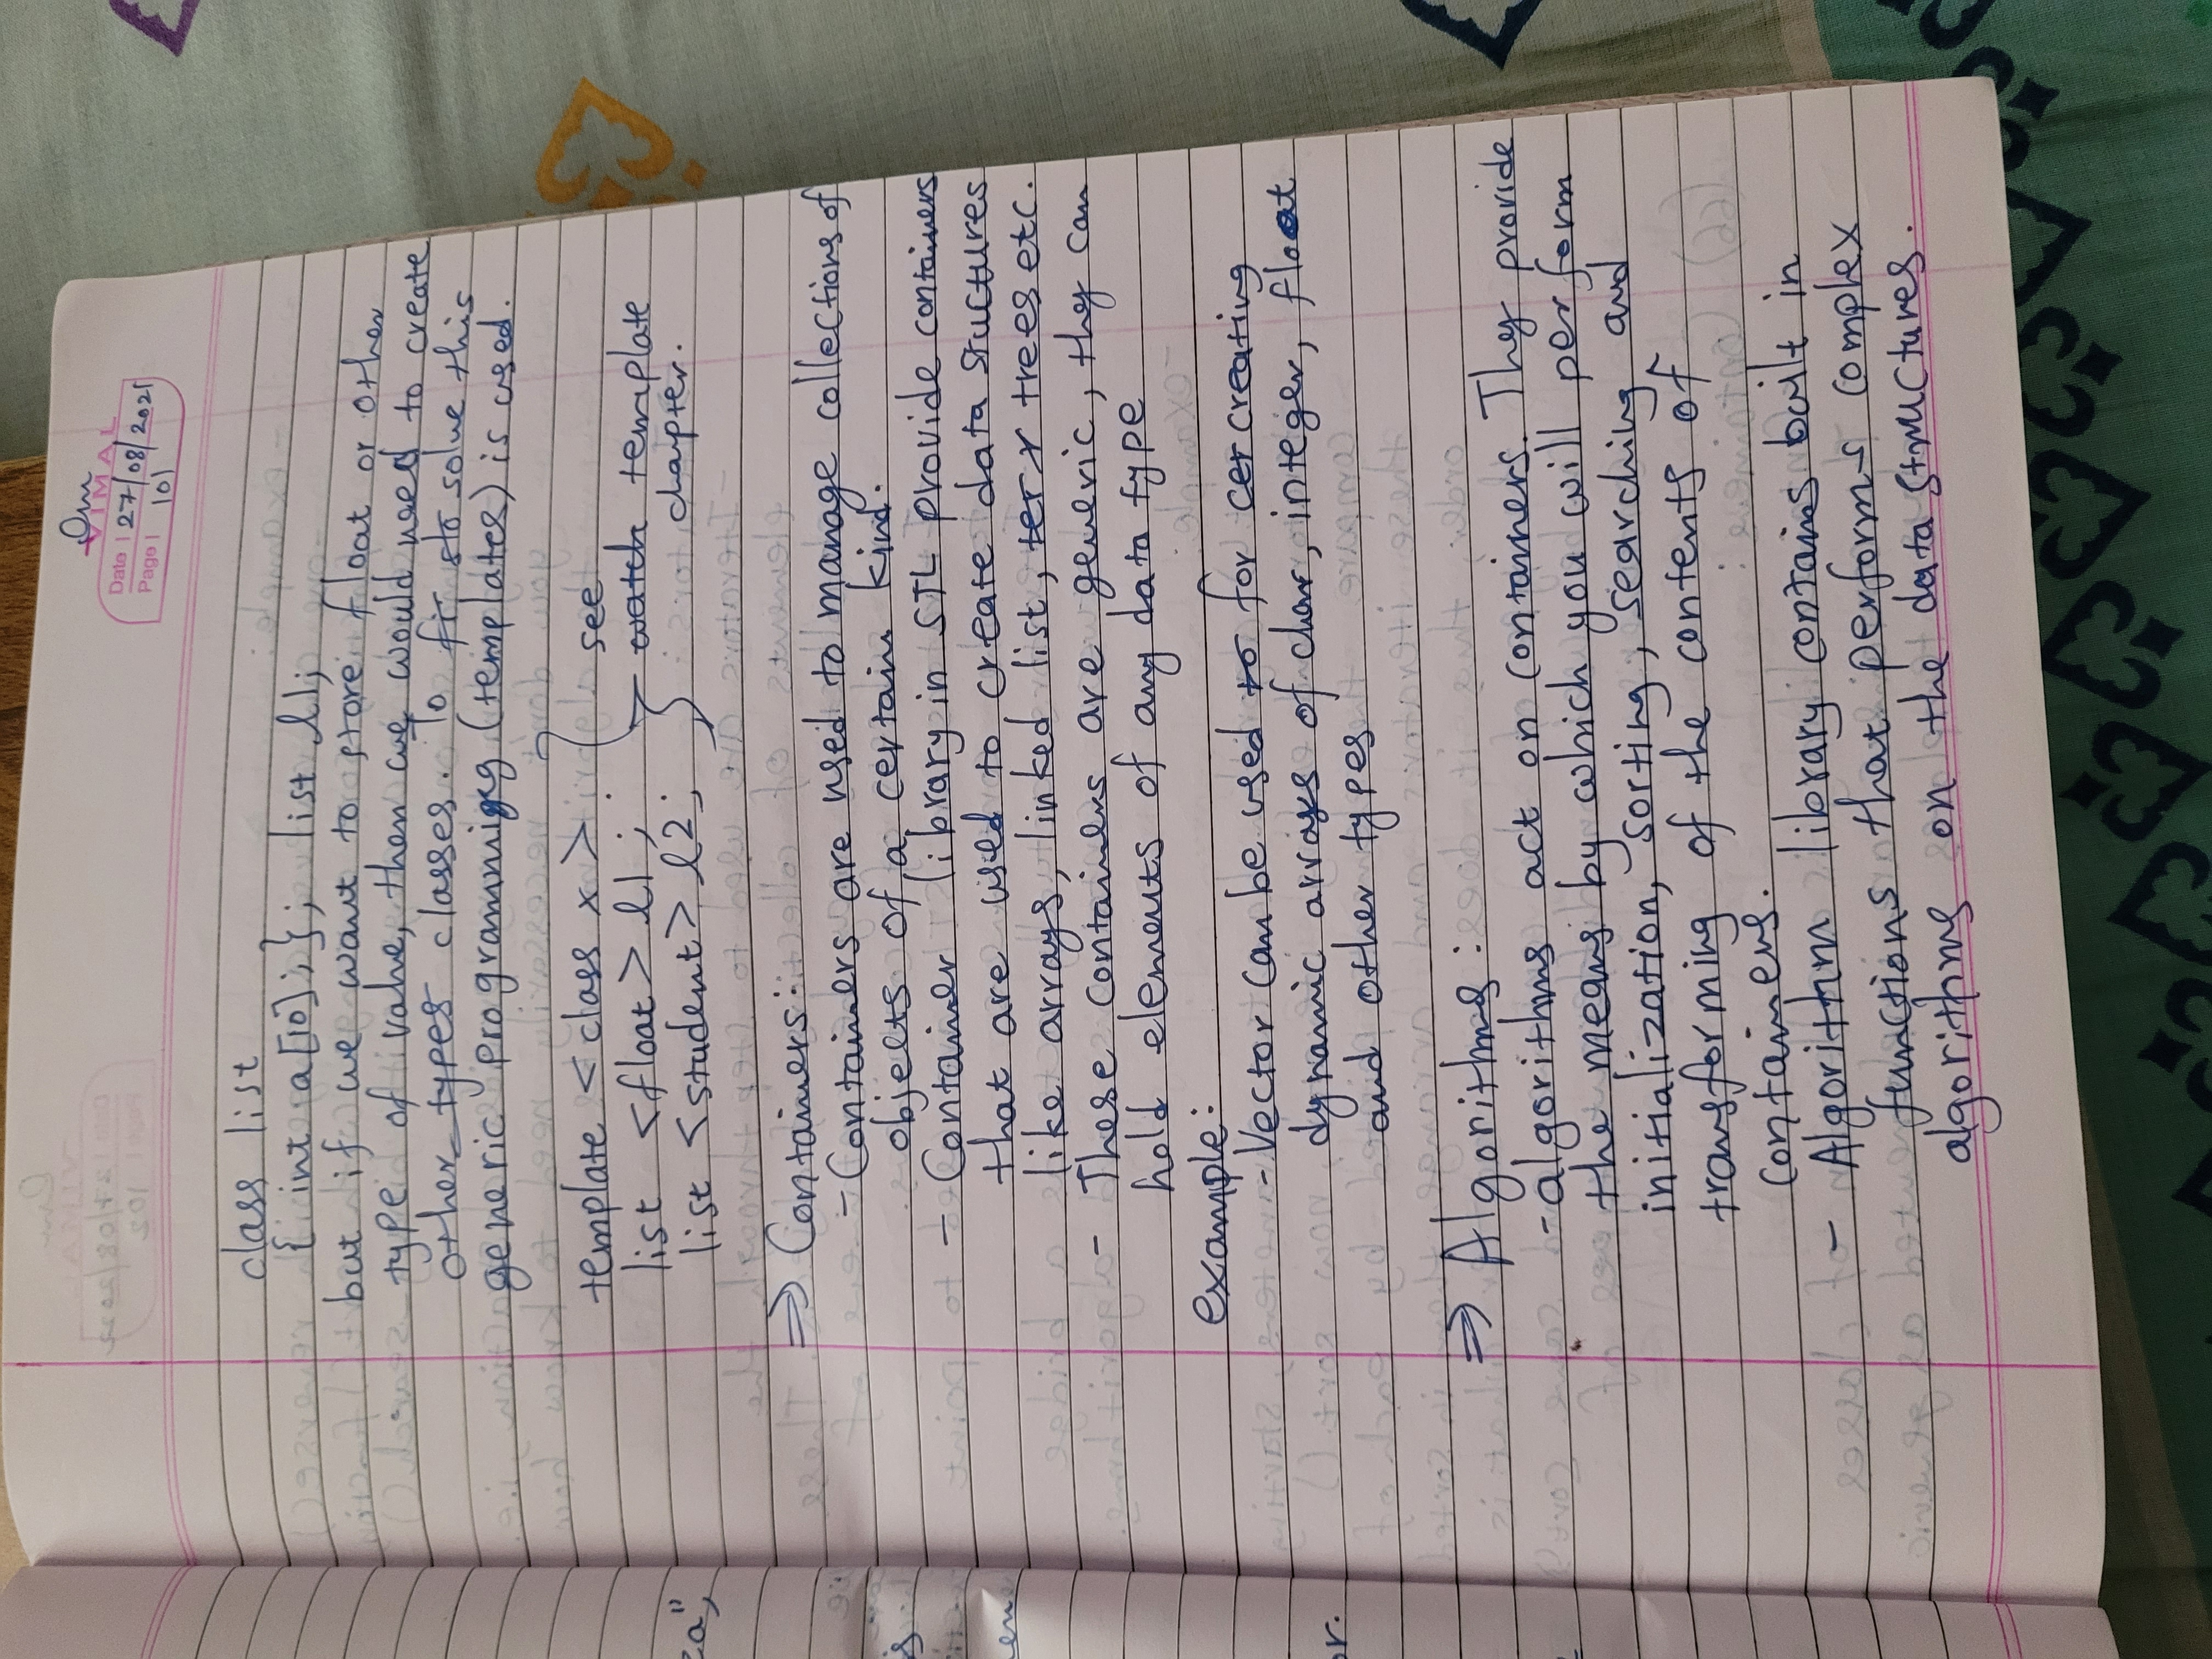 Om
VIMAL
Date | 27/08/2021
Page | 101
class list
{ int a[10]; }; list l1;
but if we want to store float or other
type of value, then we would need to create
other types classes. To fir sto solve this
generic programming (templates) is used.
template <class x>
list <float> l1;
list <student> l2;
see
watch template
chapter.
⇒ Containers:
- Containers are used to manage collections of
objects of a certain kind.
- Container library in STL provide containers
that are used to create data stuctures
like arrays, linked list, ter r trees etc.
- These containers are generic, they can
hold elements of any data type
example:
- Vector can be used to for cer creating
dynamic arrays of char, integer, float
and other types
⇒ Algorithms:
- algorithms act on containers. They provide
the means by which you will perform
initialization, sorting, searching and
transforming of the contents of
containers.
- Algorithm library contains built in
functions that performs complex
algorithms on the data structures.